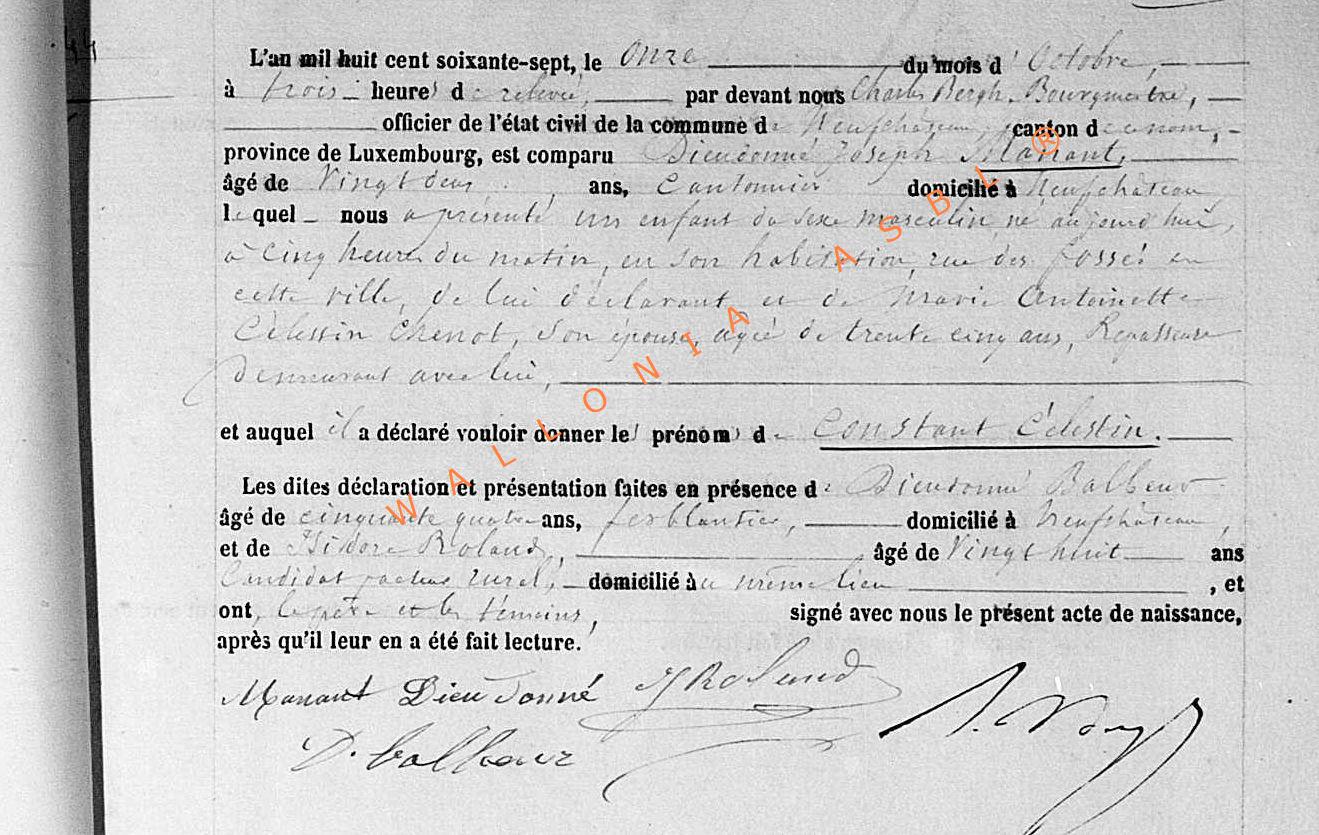 L'an mil huit cent soixante-sept, le Onze du mois d'Octobre,
à trois heures de relevée, par devant nous Charles Bergh, Bourgmestre,
officier de l'état civil de la commune de Neufchâteau, canton de ce nom,
province de Luxembourg, est comparu Dieudonné Joseph Manant,
âgé de Vingt deux ans, Cantonnier domicilié à Neufchâteau
lequel nous a présenté un enfant du sexe masculin, né aujourd'hui,
à cinq heures du matin, en son habitation, rue des fossés en
cette ville, de lui déclarant et de Marie Antoinette
Célestin Chenot, son épouse, agée de trente cinq ans, Repasseuse
demeurant avec lui,
et auquel il a déclaré vouloir donner les prénoms de Constant Célestin.
Les dites déclaration et présentation faites en présence de Dieudonné Balbeur
âgé de cinquante quatre ans, ferblantier, domicilié à Neufchâteau,
et de Isidore Roland, âgé de Vingt huit ans
Candidat facteur rural, domicilié au même lieu, et
ont, le père et les témoins, signé avec nous le présent acte de naissance,
après qu'il leur en a été fait lecture.
Manant Dieudonné J Roland
D. balbeur
WALLONIA ASBL ®